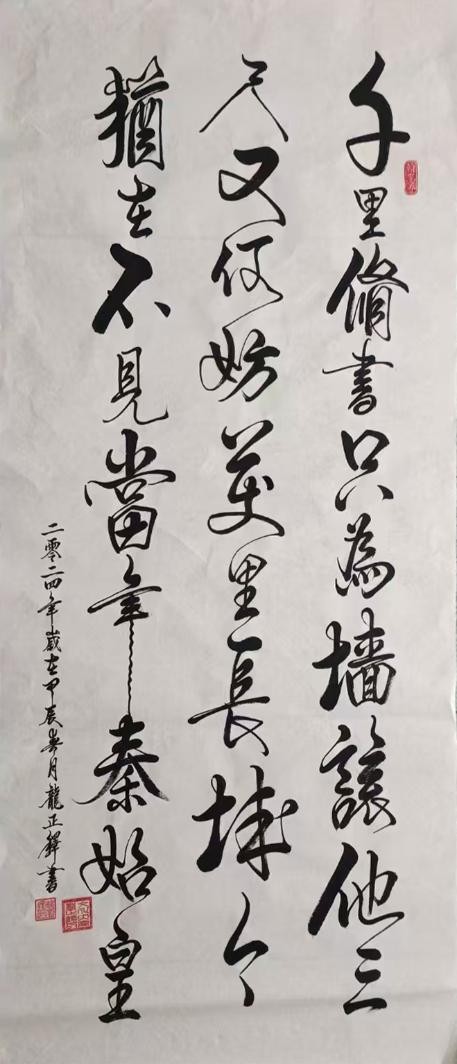 千里脩書只為墙讓他三
尺又何妨萬里長城今
猶在不見當年秦始皇
二零二四年歲在甲辰月龍正書